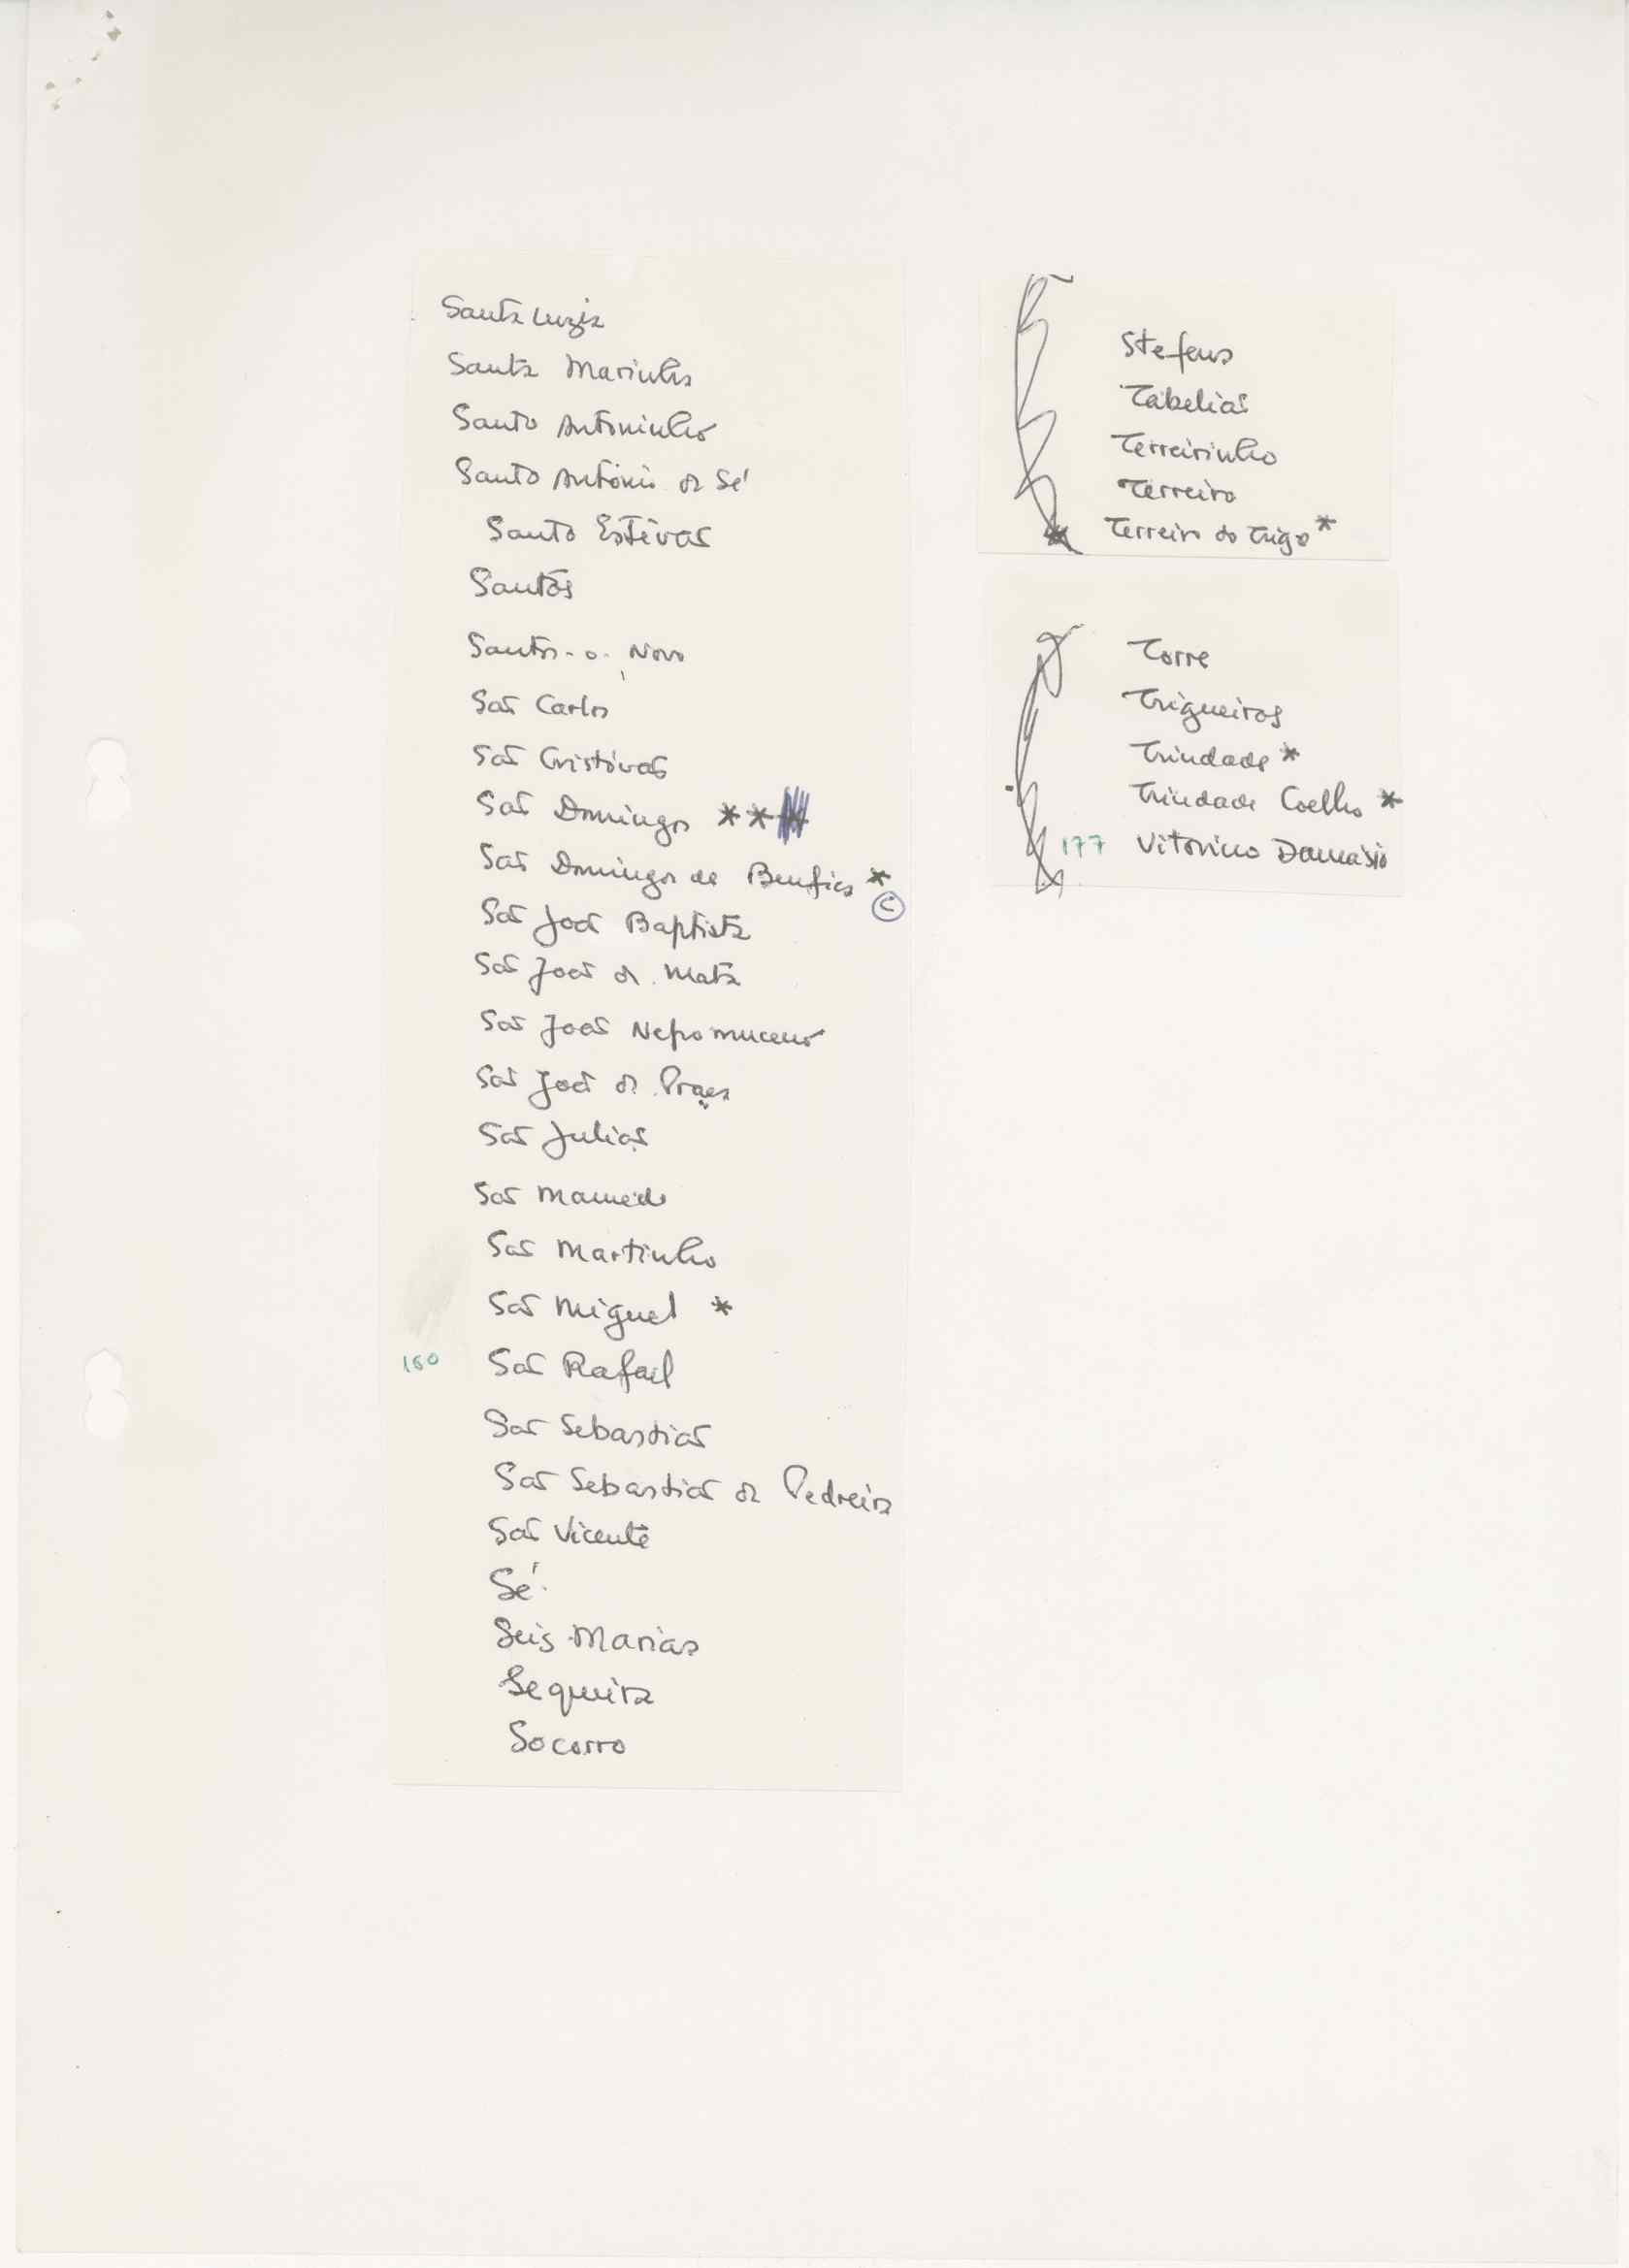 Santa Luzia
Santa Marinha
Santo Antoninho
Santo António da Sé
Santo Estêvão
Santos
Santos-o-Novo
São Carlos
São Cristóvão
São Domingos **
São Domingos de Benfica *
©
São João Baptista
São João da Mata
São João Nepomuceno
São João da Praça
São Julião
São Mamede
São Martinho
São Miguel *
160 São Rafael
São Sebastião
São Sebastião da Pedreira
São Vicente
Sé
Seis Marias
Sequeira
Socorro
Stefens
Tabelião
Terreirinho
Terreiro
Terreiro do Trigo *
Torre
Trigueiros
Trindade *
Trindade Coelho *
177 Vitorino Damásio